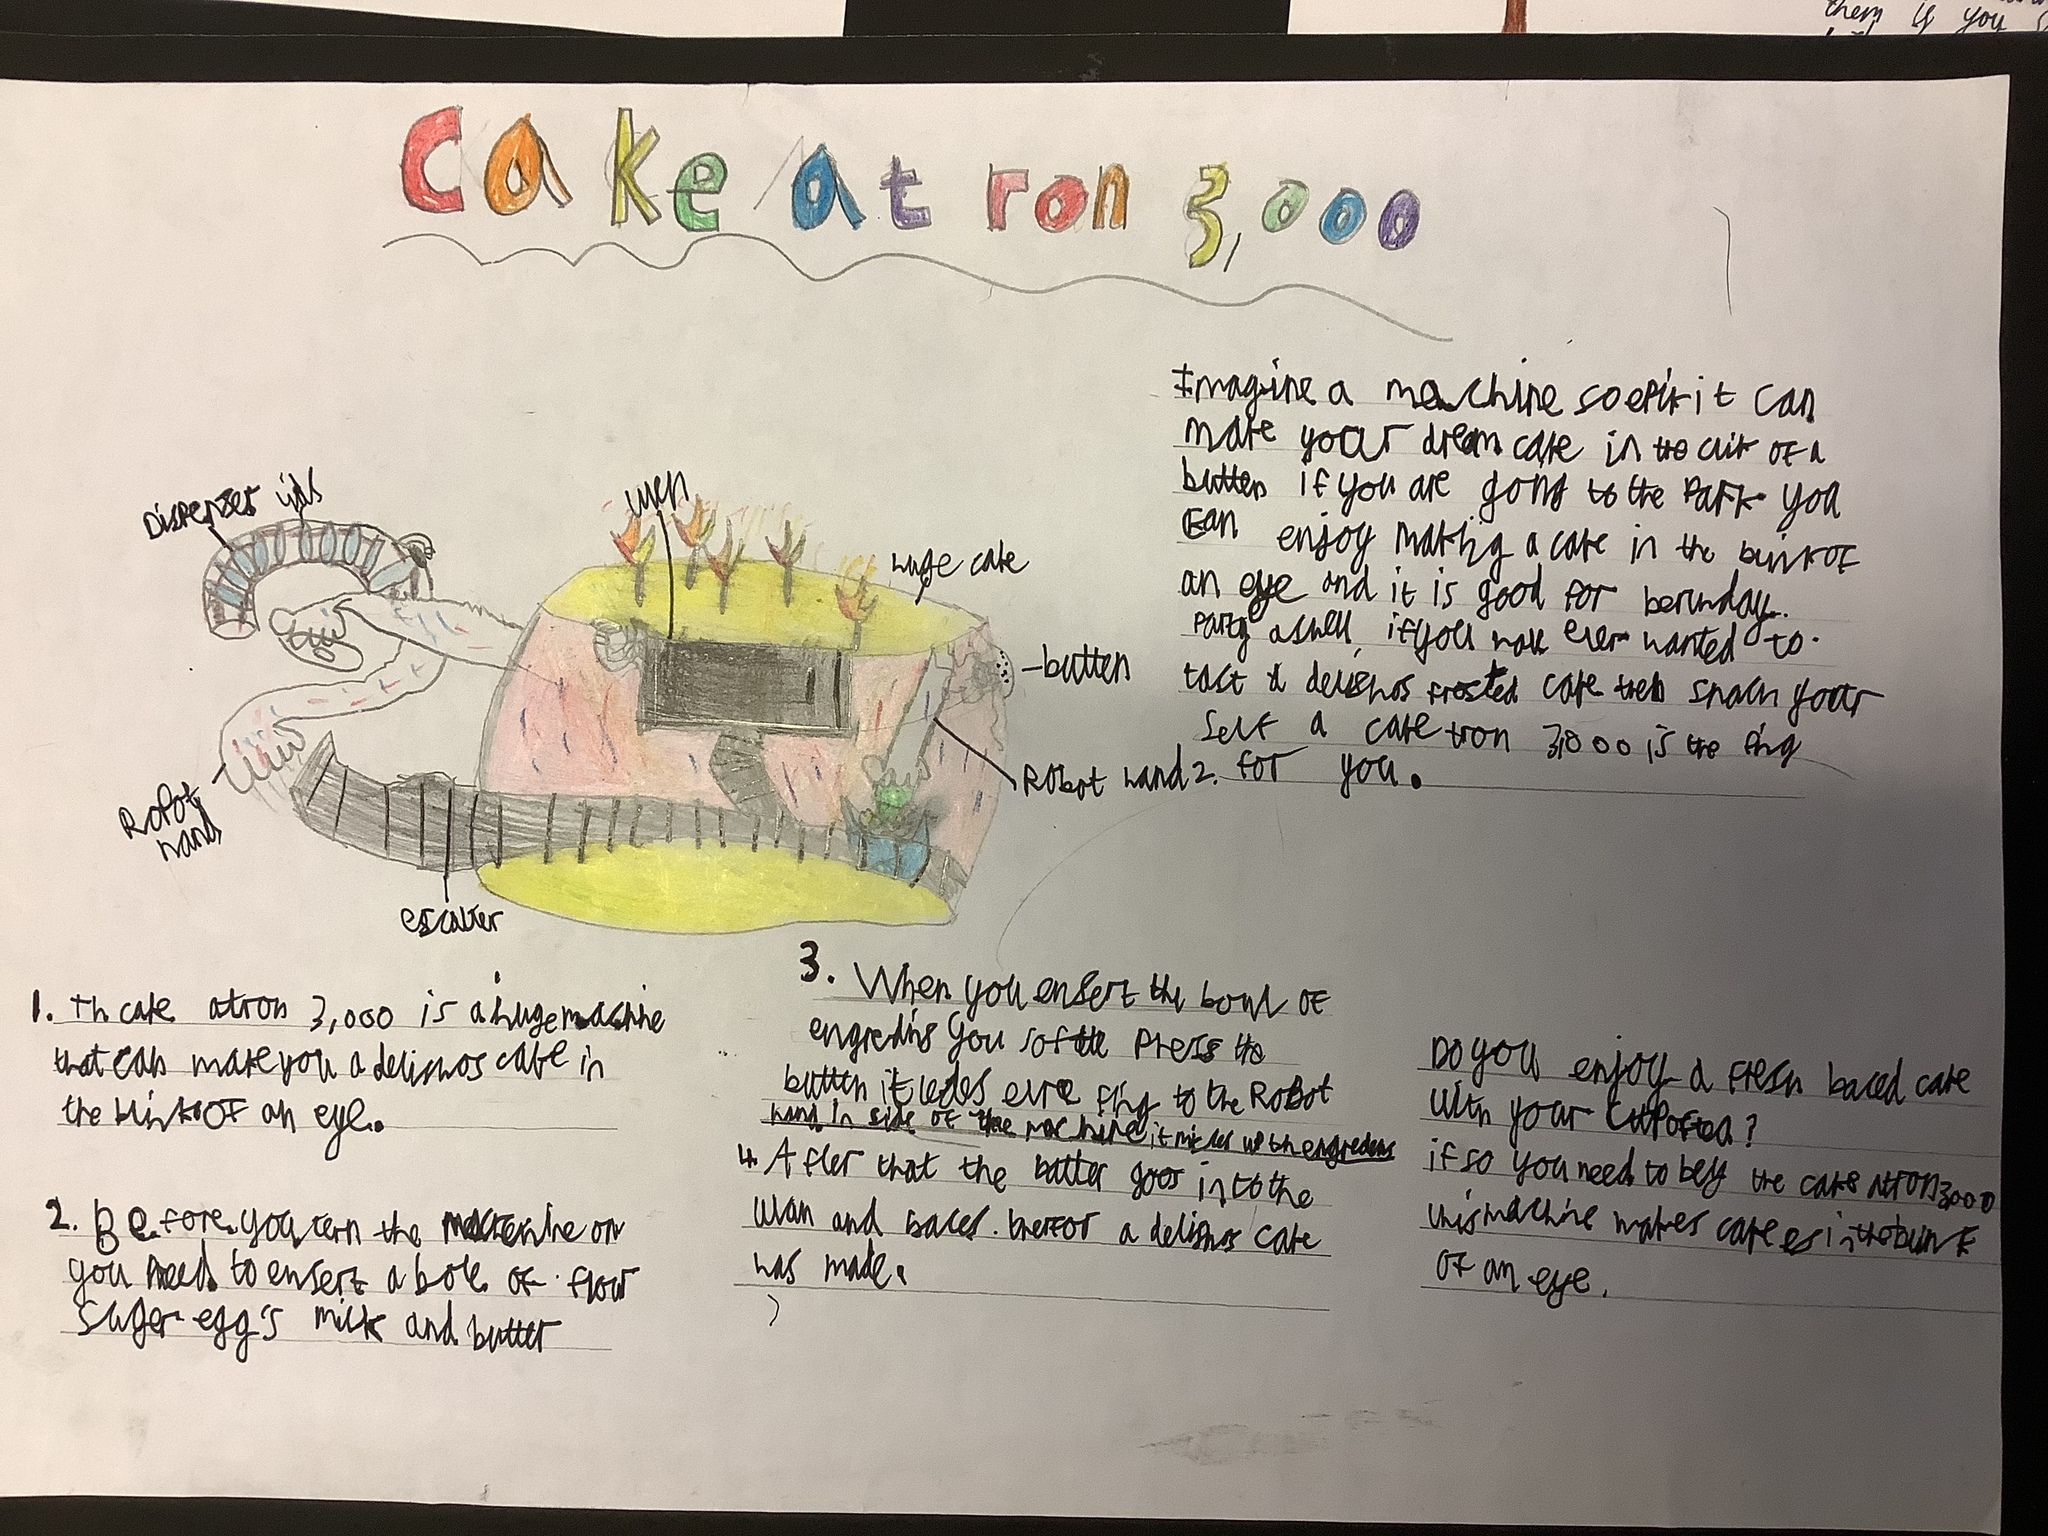 them if you
Cake at ron 3,000
Imagine a machine so epik it can
make your dream cake in the clik of a
butten if you are gong to the Park you
can enjoy making a cake in the blink of
an eye and it is good for
Party aswell, if you have ever wanted to
tast a delishos frosted cake then snach your
self a cake tron 3,000 is the fing
for you.
Dispenser lids
uven
huge cake
-butten
Robot hand 2.
Robot
hand
escalter
1. Th cake atron 3,000 is a huge machine
that can make you a delishos cake in
the blink of an eye.
2. Before you tern the machine on
you need to ensert a bole of flour
suger egg's milk and butter
3. When you ensert the bowl of
engredins you softle Press the
butten it ledes evre fing to the Robot
hand in side of the machine, it mixes up th engredens
4. After that the batter goes in to the
uvan and baces. therfor a delishos cake
was made.
Do you enjoy a fresh baced cake
with your cup of tea?
if so you need to bey the cake atron 3,000
this machine makes cakes in the blink
of an eye.